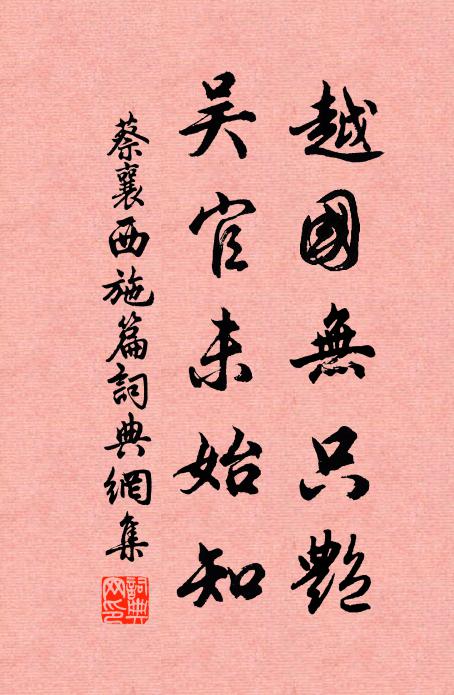 越國無只艷
吴官未始知
蔡襄西施篇詞典網集
詞典网印